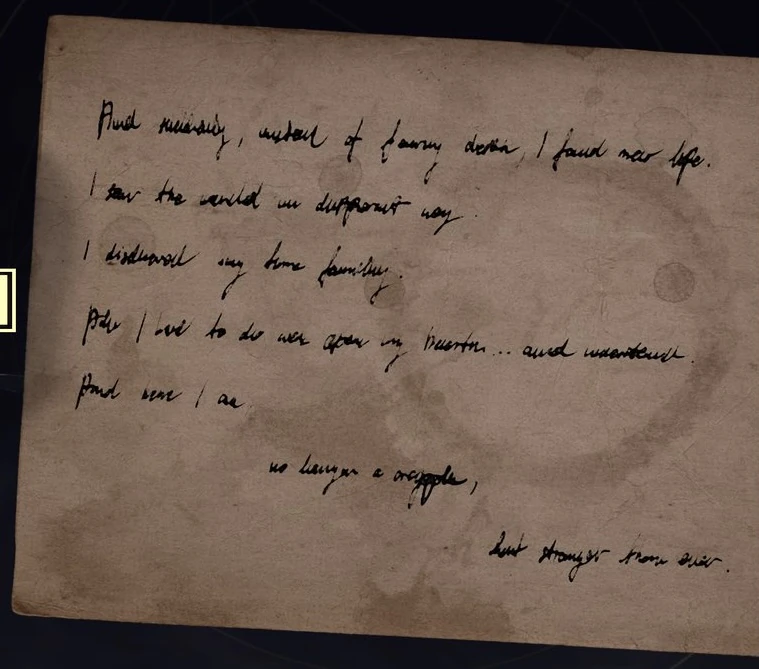 And suddenly, instead of facing death, I found new life.
I saw the world in different way.
I discovered my true family.
All I had to do was open my heart... and understand.
And here I am.
no longer a cripple,
but stronger than ever.